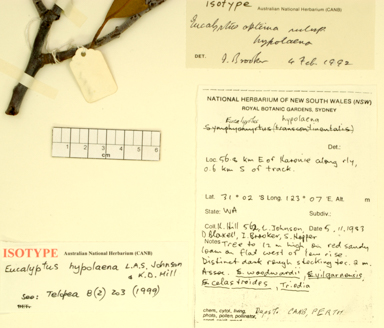 ISOTYPE
Australian National Herbarium (CANB)
Eucalyptus optima subsp.
hypolaena
DET. I. Brooker 4 Feb 1992
NATIONAL HERBARIUM OF NEW SOUTH WALES (NSW)
ROYAL BOTANIC GARDENS, SYDNEY
Eucalyptus hypolaena
Symphyomyrtus (transcontinentalis)
Det:
Loc 56.8 km E of Karonie along rly,
0.6 km S of track.
Lat. 31° 02 'S Long. 123° 07 'E. Alt. m
State: WA Subdiv.:
Coll. K. Hill 562, L. Johnson, Date 5, 11, 1983
D. Blaxell, I. Brooker, S. Hopper
Notes Tree to 12 m high on red sandy
loam on flat west of low rise.
Distinct dark rough stocking to 2 m.
Assoc. E. woodwardii, E. yilgarnensis,
E. celastroides, Triodia
chem, cytol, living,
photo, pollen, potential
Dupl. to CANB, PERTH
ISOTYPE Australian National Herbarium (CANB)
Eucalyptus hypolaena L.A.S. Johnson
& K.D. Hill
See: Telopea 8(2) 203 (1999)
0 1 2 3 4 5 6
cm